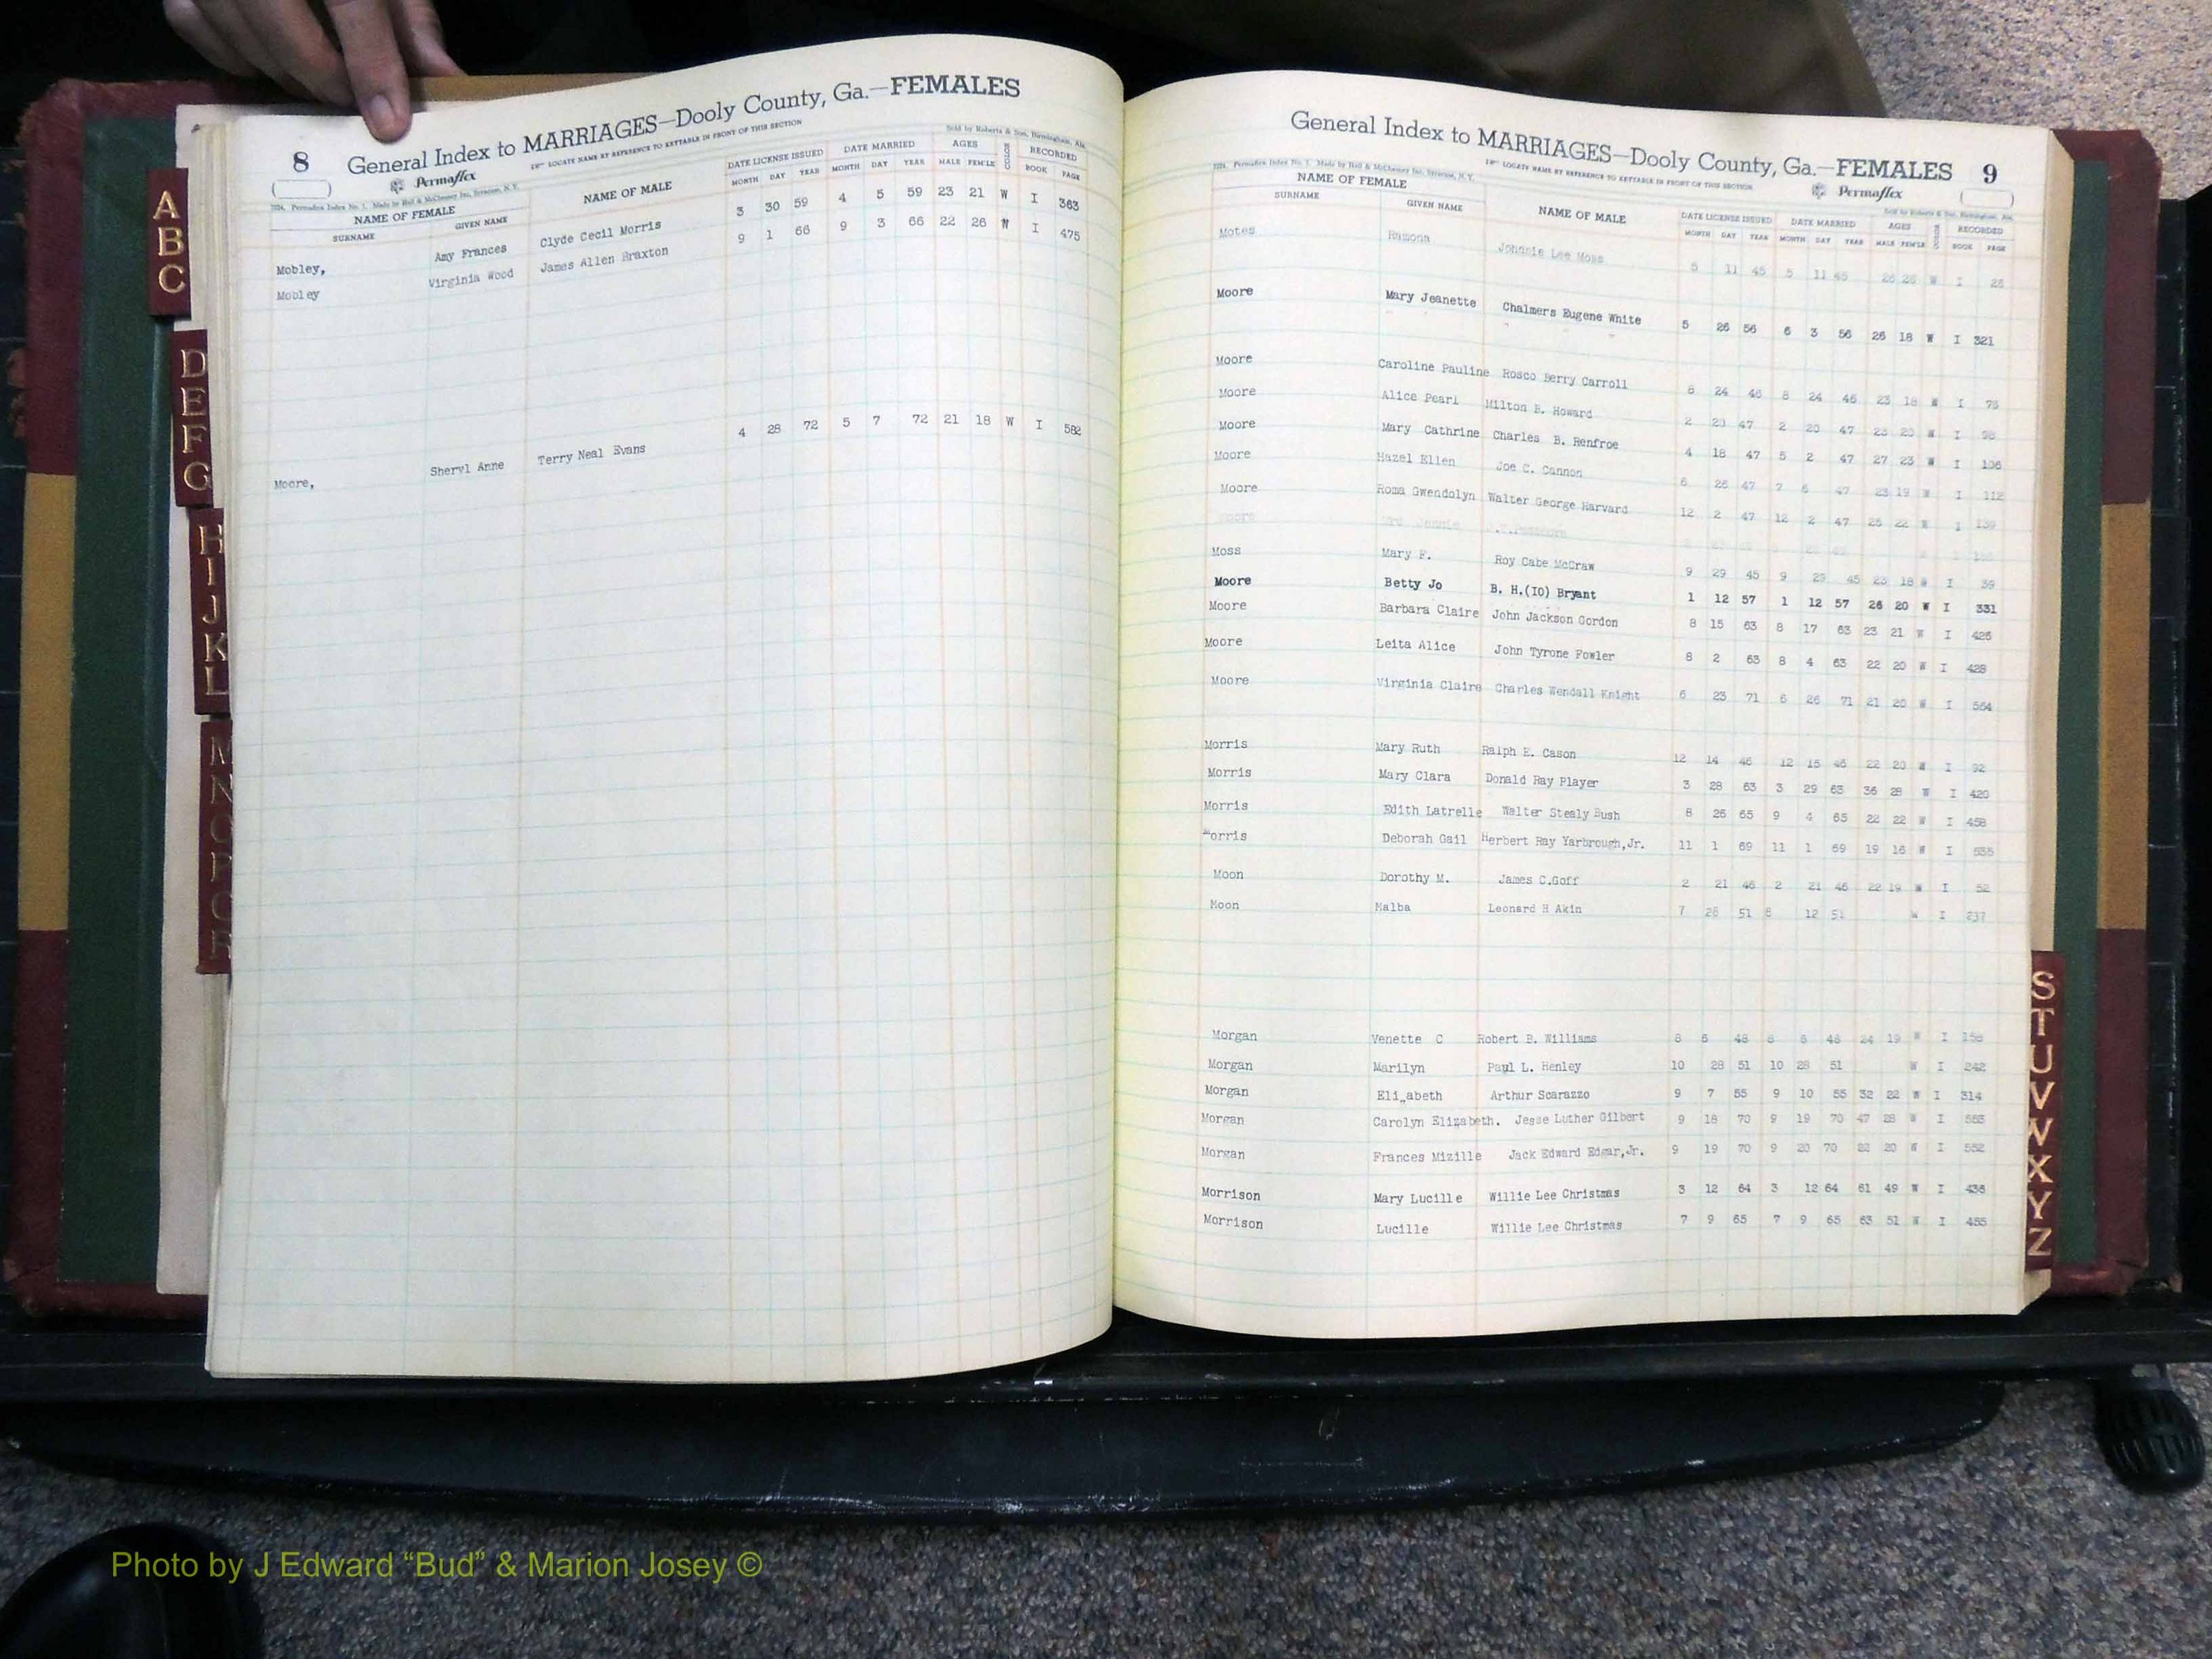 8 General Index to MARRIAGES—Dooly County, Ga.—FEMALES
LOCATE NAME BY REFERENCE TO KEYTABLE IN FRONT OF THIS SECTION
Permaflex
Sold by Roberts & Son, Birmingham, Ala.
NAME OF FEMALE NAME OF MALE DATE LICENSE ISSUED DATE MARRIED AGES COLOR RECORDED
SURNAME GIVEN NAME MONTH DAY YEAR MONTH DAY YEAR MALE FEM'LE BOOK PAGE
Mobley, Amy Frances Clyde Cecil Morris 3 30 59 4 5 59 23 21 W I 363
Mobley Virginia Wood James Allen Braxton 9 1 66 9 3 66 22 26 W I 475
Moore, Sheryl Anne Terry Neal Evans 4 28 72 5 7 72 21 18 W I 582
A
B
C
D
E
F
G
H
I
J
K
L
M
N
O
P
Q
R
General Index to MARRIAGES—Dooly County, Ga.—FEMALES 9
LOCATE NAME BY REFERENCE TO KEYTABLE IN FRONT OF THIS SECTION
Permaflex
NAME OF FEMALE NAME OF MALE DATE LICENSE ISSUED DATE MARRIED AGES COLOR RECORDED
SURNAME GIVEN NAME MONTH DAY YEAR MONTH DAY YEAR MALE FEM'LE BOOK PAGE
Motes Ramona Johnnie Lee Moss 5 11 45 5 11 45 W I
Moore Mary Jeanette Chalmers Eugene White 5 26 56 6 3 56 26 18 W I 321
Moore Caroline Pauline Rosco Berry Carroll 8 24 46 8 24 46 23 18 W I
Moore Alice Pearl Milton B. Howard 2 20 47 2 20 47 W I
Moore Mary Cathrine Charles B. Renfroe 4 18 47 5 2 47 27 23 W I 106
Moore Hazel Ellen Joe C. Cannon 6 47 7 47 23 19 W I 112
Moore Roma Gwendolyn Walter George Harvard 12 2 47 12 2 47 25 22 W I 139
Moss Mary F. Roy Cabe McCraw 9 29 45 9 29 45 23 18 W I 39
Moore Betty Jo B. H.(IO) Bryant 1 12 57 1 12 57 26 20 W I 331
Moore Barbara Claire John Jackson Gordon 8 15 63 8 17 63 23 21 W I
Moore Leita Alice John Tyrone Fowler 8 2 63 8 4 63 22 20 W I 428
Moore Virginia Claire Charles Wendall Knight 6 23 71 6 26 71 21 20 W I 564
Morris Mary Ruth Ralph E. Cason 12 14 46 12 15 46 22 20 W I 92
Morris Mary Clara Donald Ray Player 3 28 63 3 29 63 36 28 W I 420
Morris Edith Latrelle Walter Stealy Bush 8 26 65 9 4 65 22 22 W I 458
Morris Deborah Gail Herbert Ray Yarbrough,Jr. 11 1 69 11 1 69 19 16 W I 535
Moon Dorothy M. James C.Goff 2 21 46 2 21 46 22 19 W I 52
Moon Malba Leonard H Akin 7 51 8 12 51 W I 237
Morgan Venette C Robert B. Williams 8 48 8 48 24 19 W I
Morgan Marilyn Paul L. Henley 10 28 51 10 28 51 W I 242
Morgan Eli abeth Arthur Scarazzo 9 7 55 9 10 55 32 22 W I 314
Morgan Carolyn Elizabeth. Jesse Luther Gilbert 9 18 70 9 19 70 47 28 W I
Morgan Frances Mizille Jack Edward Edgar,Jr. 9 19 70 9 20 70 22 20 W I 552
Morrison Mary Lucille Willie Lee Christmas 3 12 64 3 12 64 61 49 W I 436
Morrison Lucille Willie Lee Christmas 7 9 65 7 9 65 63 51 W I 455
S
T
U
V
W
X
Y
Z
Photo by J Edward “Bud” & Marion Josey ©